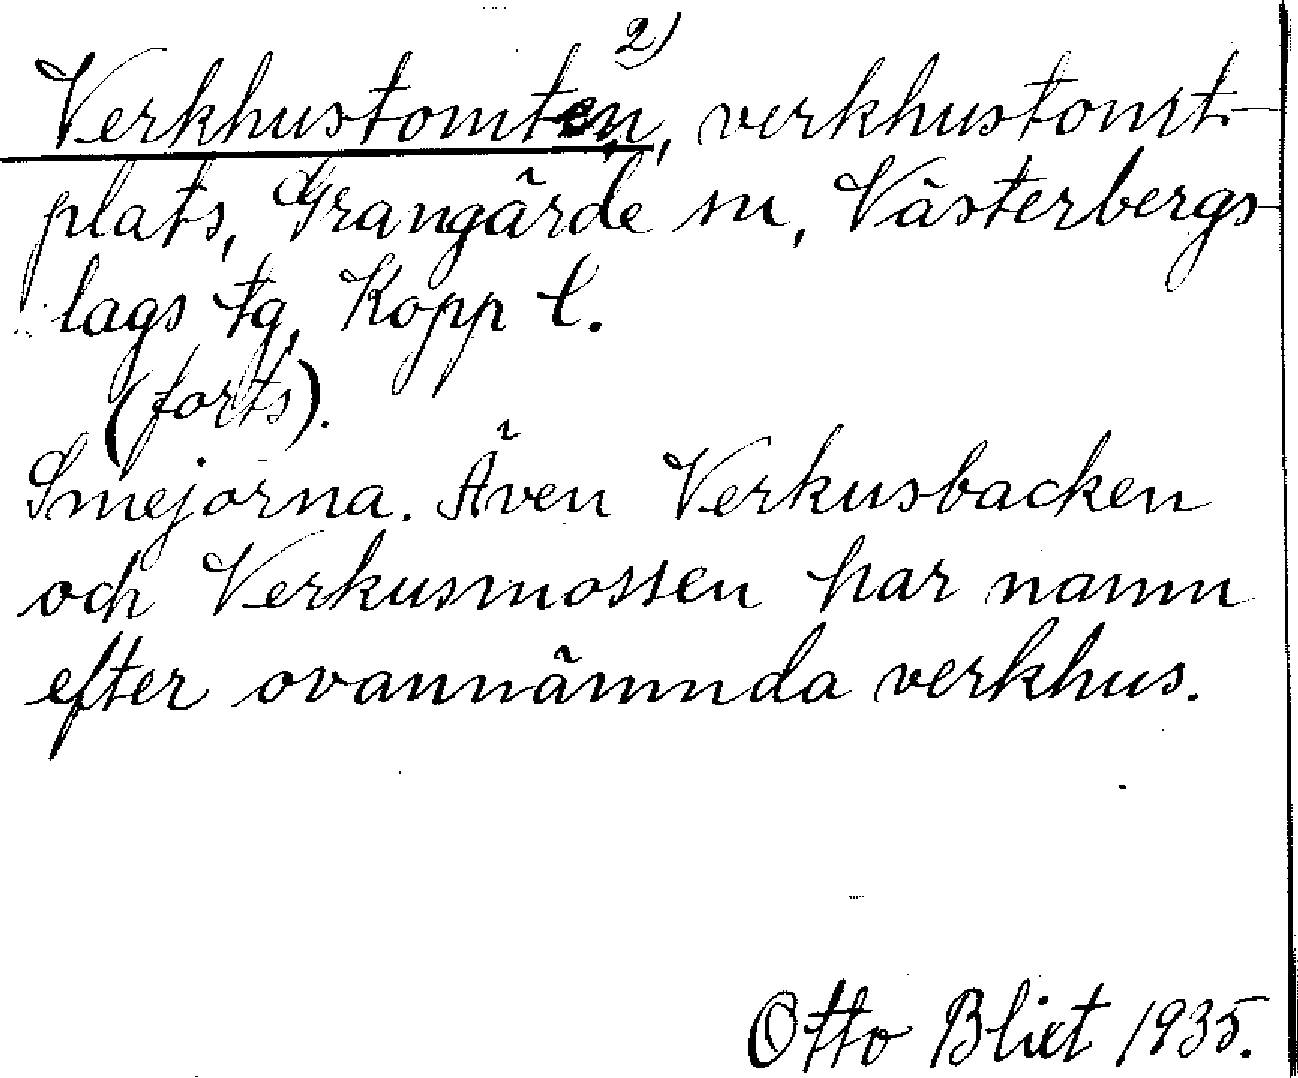 Verkhustomten, 2)  verkhustomt-
plats, Grangärde sn, Västerbergs-
lags tg, Kopp l.
(forts).
Smejorna. Även Verkusbacken
och Verkusmossen har namn
efter ovannämnda verkhus.
Otto Blixt 1935.